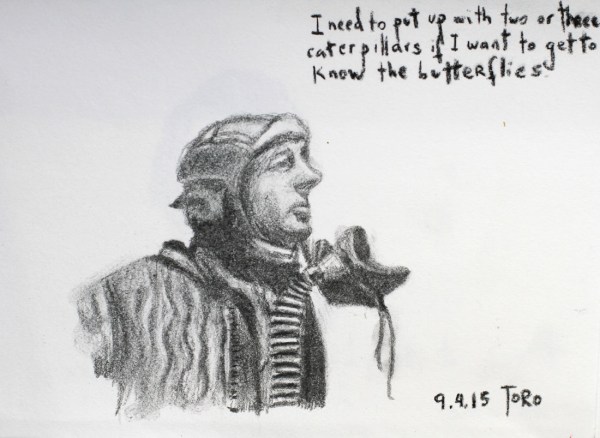 I need to put up with two or three
caterpillars if I want to get to
Know the butterflies.
9.4.15 TORO